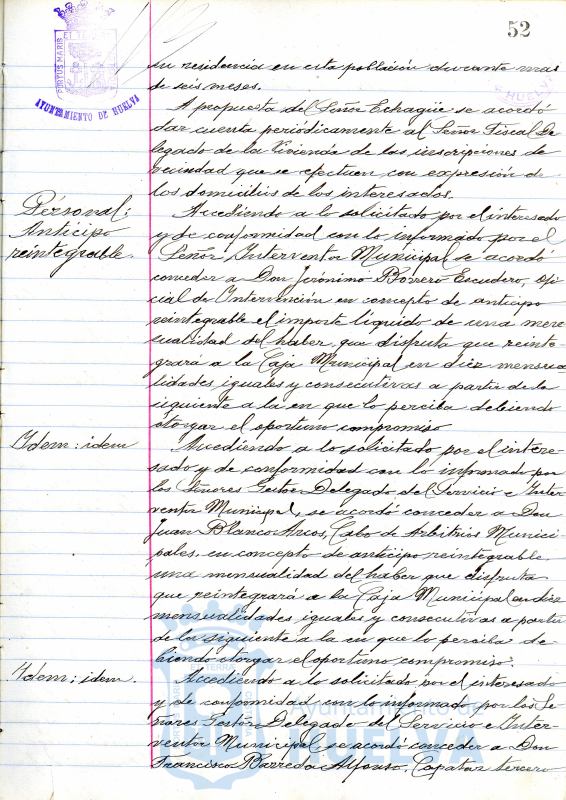 52
AYUNTAMIENTO DE HUELVA
su residencia en esta población durante mas
de seis meses.
A propuesta del Señor Echagüe se acordó
dar cuenta periódicamente al Señor Fiscal De-
legado de la Vivienda de las inscripciones de
vecindad que se efectuen con expresión de
los domicilios de los interesados.
Personal:
Anticipo
reintegrable.
Accediendo a lo solicitado por el interesado
y de conformidad con lo informado por el
Señor Interventor Municipal se acordó
conceder a Don Jerónimo Borrero Escudero, Ofi-
cial de Intervención en concepto de anticipo
reintegrable el importe líquido de una men-
sualidad del haber que disfruta que reinte-
grará a la Caja Municipal en diez mensua-
lidades iguales y consecutivas a partir de la
siguiente a la en que lo perciba debiendo
otorgar el oportuno compromiso
Idem: idem
Accediendo a lo solicitado por el intere-
sado y de conformidad con lo informado por
los Señores Gestor Delegado del Servicio e Inter-
ventor Municipal, se acordó conceder a Don
Juan Blanco Arcos, Cabo de Arbitrios Munici-
pales, en concepto de anticipo reintegrable
una mensualidad del haber que disfruta
que reintegrará a la Caja Municipal en diez
mensualidades iguales y consecutivas a partir
de la siguiente a la en que lo perciba de-
biendo otorgar el oportuno compromiso.
Idem: idem.
Accediendo a lo solicitado por el interesado
y de conformidad con lo informado por los Se-
ñores Gestor Delegado del Servicio e Inter-
ventor Municipal, se acordó conceder a Don
Francisco Barreda Alfonso, Capataz tercero
Ayuntamiento de
HUELVA